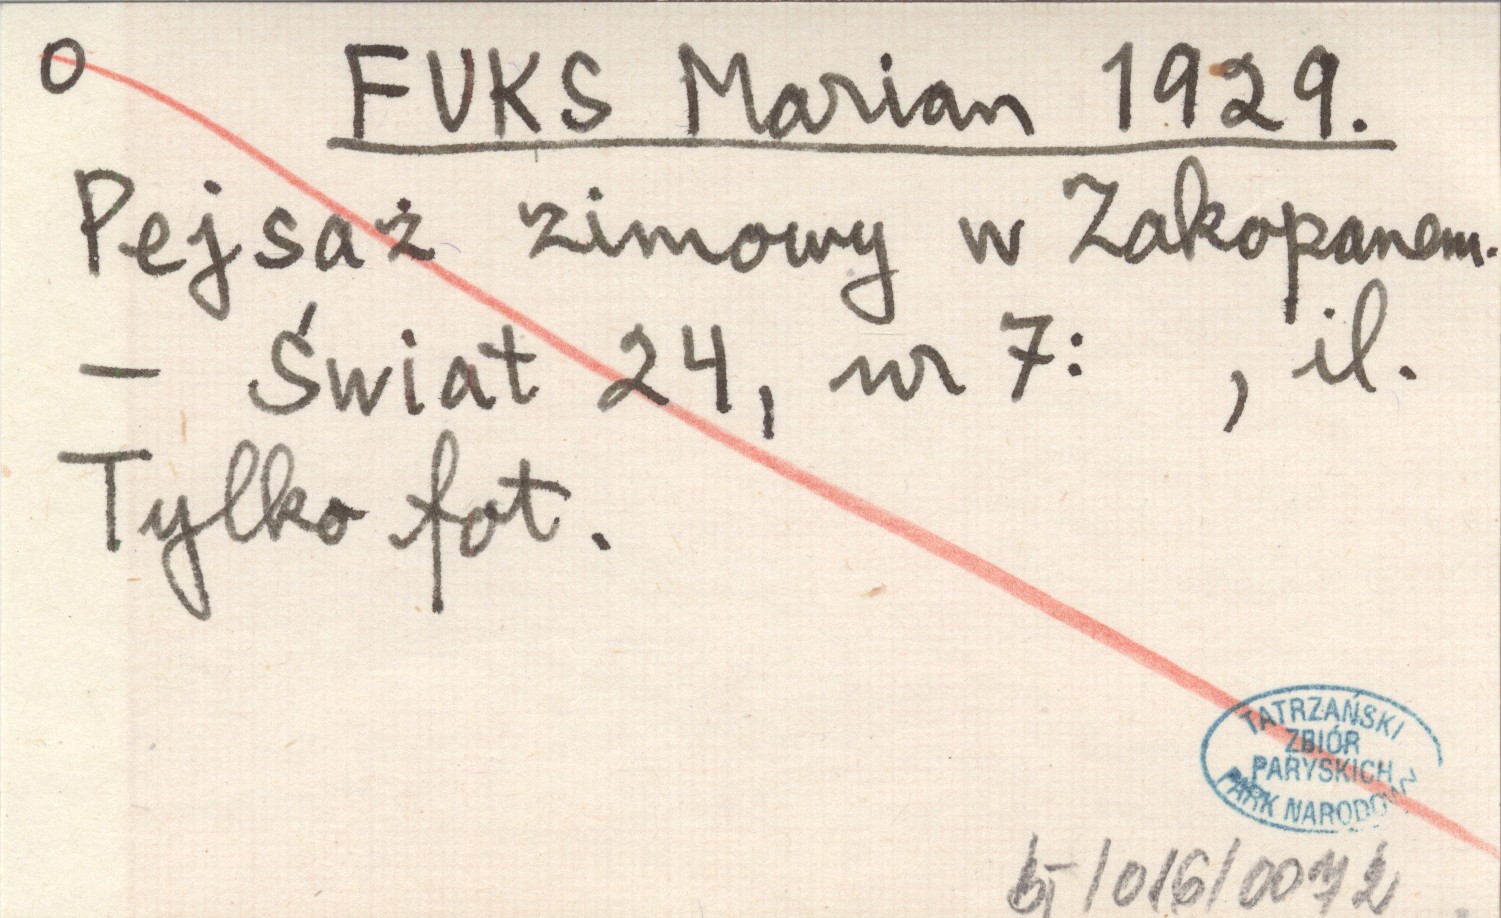 O FUKS Marian 1929.
Pejsaż zimowy w Zakopanem.
– Świat 24, nr 7:      , il.
Tylko fot.
TATRZAŃSKI
ZBIÓR
PARYSKICH
PARK NARODOWY
bj/016/0072